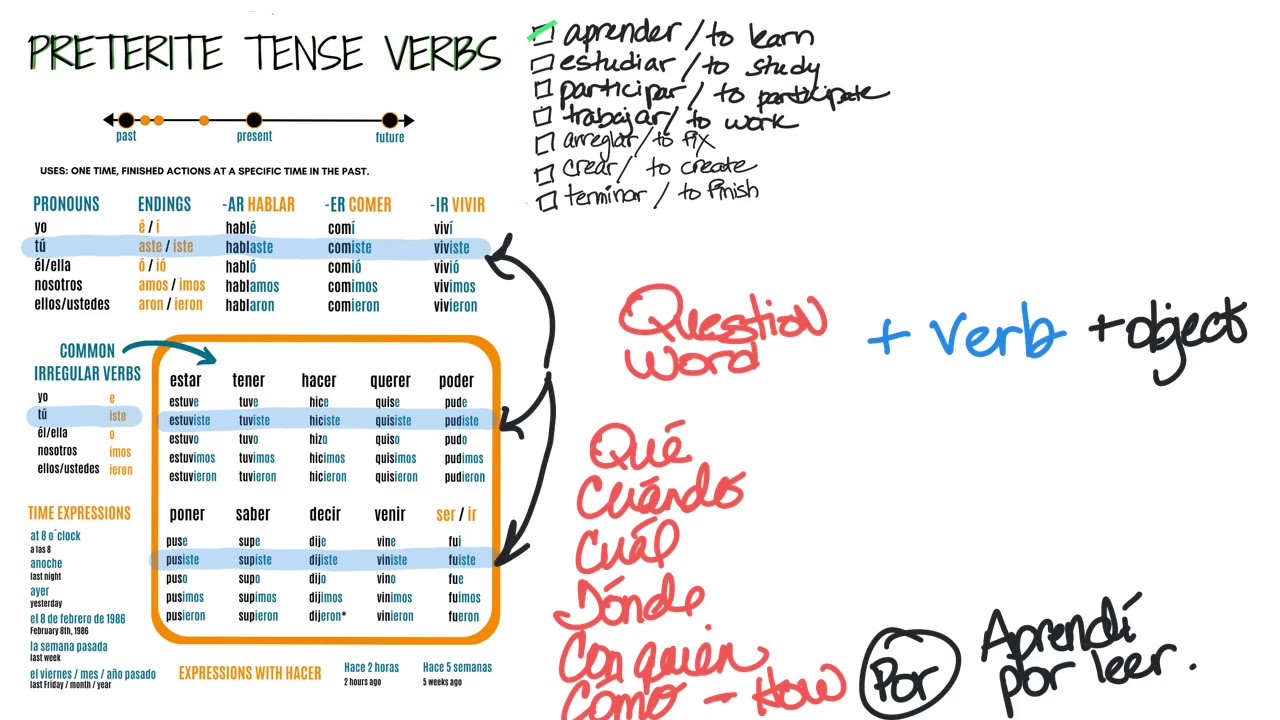 PRETERITE TENSE VERBS
past present future
USES: ONE TIME, FINISHED ACTIONS AT A SPECIFIC TIME IN THE PAST.
PRONOUNS ENDINGS -AR HABLAR -ER COMER -IR VIVIR
yo é / í hablé comí viví
tú aste / iste hablaste comiste viviste
él/ella ó / ió habló comió vivió
nosotros amos / imos hablamos comimos vivimos
ellos/ustedes aron / ieron hablaron comieron vivieron
COMMON
IRREGULAR VERBS
yo e
tú iste
él/ella o
nosotros imos
ellos/ustedes ieron
estar tener hacer querer poder
estuve tuve hice quise pude
estuviste tuviste hiciste quisiste pudiste
estuvo tuvo hizo quiso pudo
estuvimos tuvimos hicimos quisimos pudimos
estuvieron tuvieron hicieron quisieron pudieron
poner saber decir venir ser / ir
puse supe dije vine fui
pusiste supiste dijiste viniste fuiste
puso supo dijo vino fue
pusimos supimos dijimos vinimos fuimos
pusieron supieron dijeron* vinieron fueron
TIME EXPRESSIONS
at 8 o´clock
a las 8
anoche
last night
ayer
yesterday
el 8 de febrero de 1986
February 8th, 1986
la semana pasada
last week
el viernes / mes / año pasado
last Friday / month / year
EXPRESSIONS WITH HACER
Hace 2 horas
2 hours ago
Hace 5 semanas
5 weeks ago
aprender / to learn
estudiar / to study
participar / to participate
trabajar / to work
arreglar / to fix
crear / to create
terminar / to finish
Question
word
+ verb + object
Qué
Cuándos
Cuál
Dónde
Con quien
Como - How
Por
Aprendí
por leer.